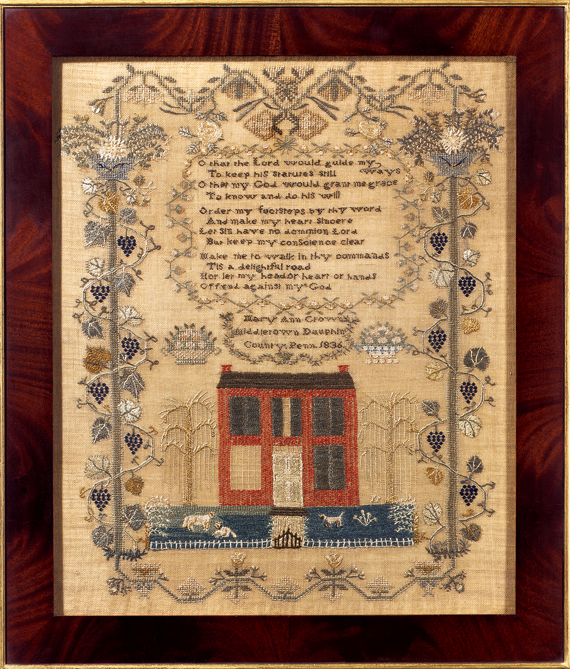 O that the Lord would guide my
ways
To keep his statutes still
O that my God would grant me grace
To know and do his will
Order my footsteps by thy word
And make my heart sincere
Let Sin have no dominion Lord
But keep my conscience clear
Make me to walk in thy commands
Tis a delightful road
Nor let my head or heart or hands
Offend against my God
Mary Ann
Middletown Dauphin
County Penn. 1836